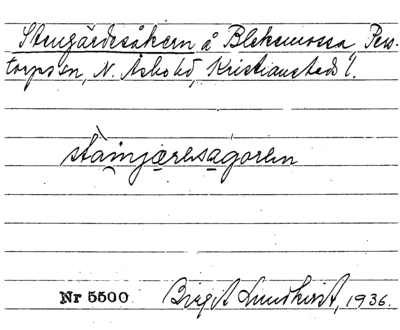 Stengärdesåkern å Blekemossa, Pers-
torps sn, N. Åsbo hd, Kristianstads l.
stäinjæresagoren
Nr 5500 Birgit Lundkvist, 1936.